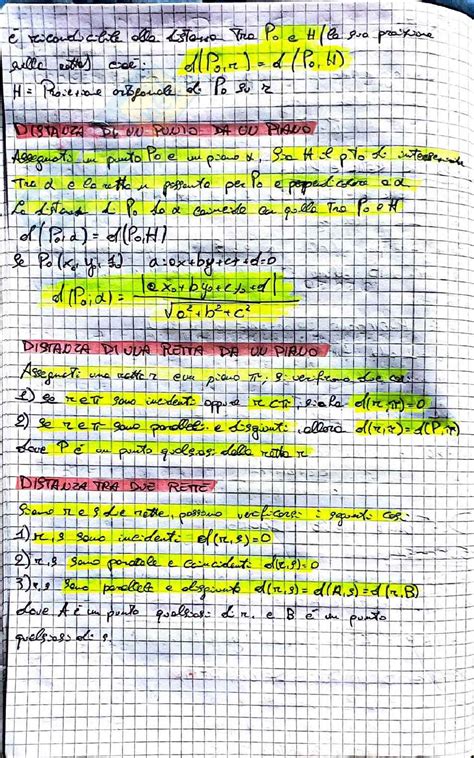 è riconducibile alla distanza tra P₀ e H (la sua proiezione
sulla retta) così: d(P₀,r) = d(P₀,H)
H = Proiezione ortogonale di P₀ su r
DISTANZA DI UN PUNTO DA UN PIANO
Assegnati un punto P₀ e un piano α, sia H il pto di intersezione
tra α e la retta n passante per P₀ e perpendicolare a α
La distanza di P₀ da α coincide con quella tra P₀ e H
d(P₀,α) = d(P₀H)
Se P₀(x₀, y₀ α=ax+by+cz+d=0
d(P₀;α) = |ax₀+by₀+cz₀+d| / √a²+b²+c²
DISTANZA DI UNA RETTA DA UN PIANO
Assegnati una retta r e un piano π, si verificano due casi
1) se r e π sono incidenti oppure r⊂π, d(r,π)=0
2) se r e π sono paralleli e disgiunti, allora d(r,π)=d(P,π)
dove P è un punto qualsiasi della retta r
DISTANZA TRA DUE RETTE
Siano r e s due rette, possono verificarsi i seguenti casi
1) r,s sono incidenti d(r,s)=0
2) r,s sono parallele e coincidenti d(r,s)=0
3) r,s sono parallele e disgiunte d(r,s)=d(A,s)=d(r,B)
dove A è un punto qualsiasi di r, e B è un punto
qualsiasi di s.